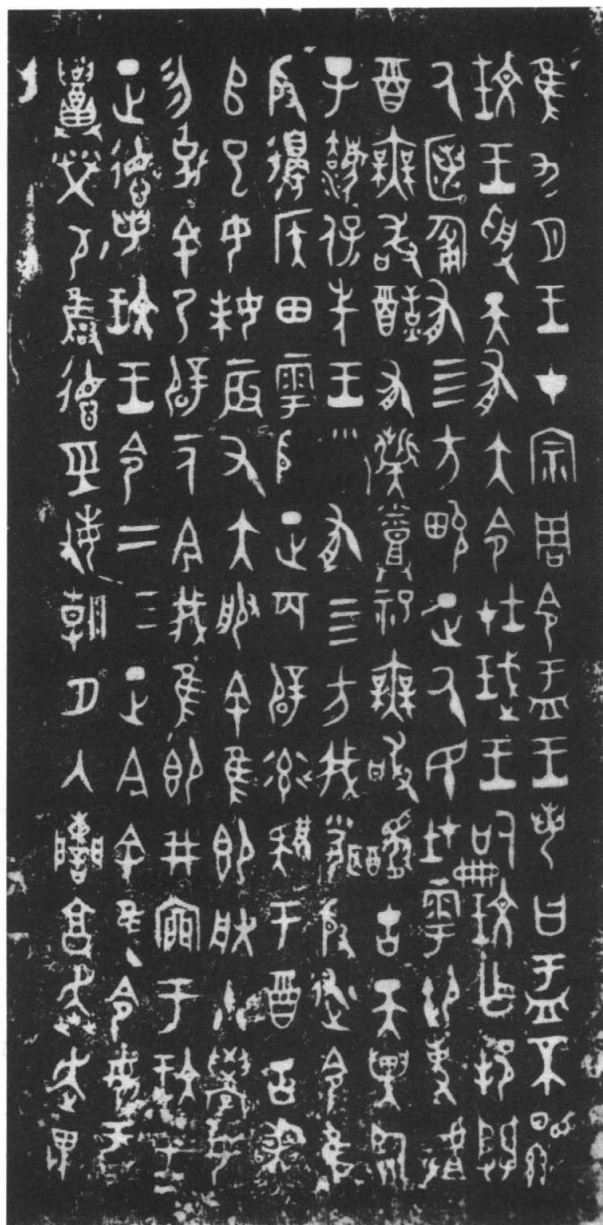 隹九月王才宗周令盂王若曰盂不顯
玟王受天有大令在珷王嗣玟乍邦闢
氒匿匍有四方畯正氒民在雩御事𠭯
酉無敢酖有祡烝祀無敢醻古天異臨
子灋保先王有四方我聞殷述令隹
殷邊侯田雩殷正百辟率肄于酉古喪
𠂤已女妹辰又大服余隹即朕小學女
勿余乃辟一人今我隹即井于玟王
正德若玟王令二三正今余隹令女盂
榮敬雍德巠敏朝夕入讕享奔走畏